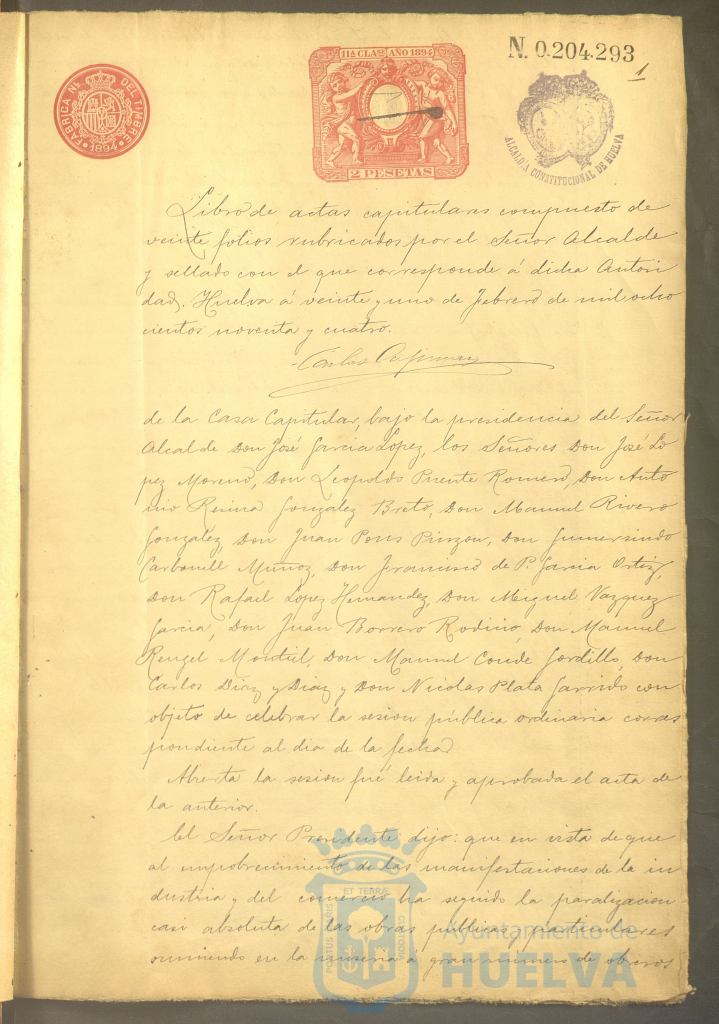 11ª CLASE AÑO 1894
N. 0.204.293
1
FABRICA NAL DEL TIMBRE
1894
2 PESETAS
ALCALDIA CONSTITUCIONAL DE HUELVA
Libro de actas capitulares compuesto de
veinte folios rubricados por el Señor Alcalde
y sellado con el que corresponde á dicha Autori
dad. Huelva á veinte y uno de Febrero de mil ocho
cientos noventa y cuatro.
de la Casa Capitular, bajo la presidencia del Señor
Alcalde Don José Garcia Lopez, los Señores Don José Ló
pez Moreno, Don Leopoldo Puente Romero, Don Anto
nio Resina Gonzalez Breto, Don Manuel Rivero
Gonzalez, Don Juan Pons Pinzon, Don Gumersindo
Carbonell Muñoz, Don Francisco de P. Garcia Ortiz,
Don Rafael Lopez Hernandez, Don Miguel Vazquez
Garcia, Don Juan Borrero Rodino, Don Manuel
Rengel Montiel, Don Manuel Conde Gordillo, Don
Carlos Diaz y Diaz y Don Nicolas Plata Garrido con
objeto de celebrar la sesion pública ordinaria corres
pondiente al dia de la fecha
Abierta la sesion fué leida y aprobada el acta de
la anterior.
El Señor Presidente dijo: que en vista de que
al empobrecimiento de las manifestaciones de la in
dustria y del comercio ha seguido la paralizacion
casi absoluta de las obras públicas y particulares
sumiendo en la miseria á gran número de obreros
PORTUS MARIS ET TERRÆ CUSTODIA
Ayuntamiento de
HUELVA